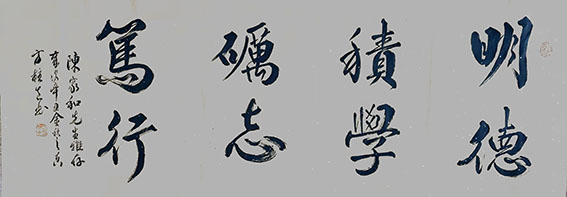 明德
積學
礪志
篤行
陳家和先生雅存